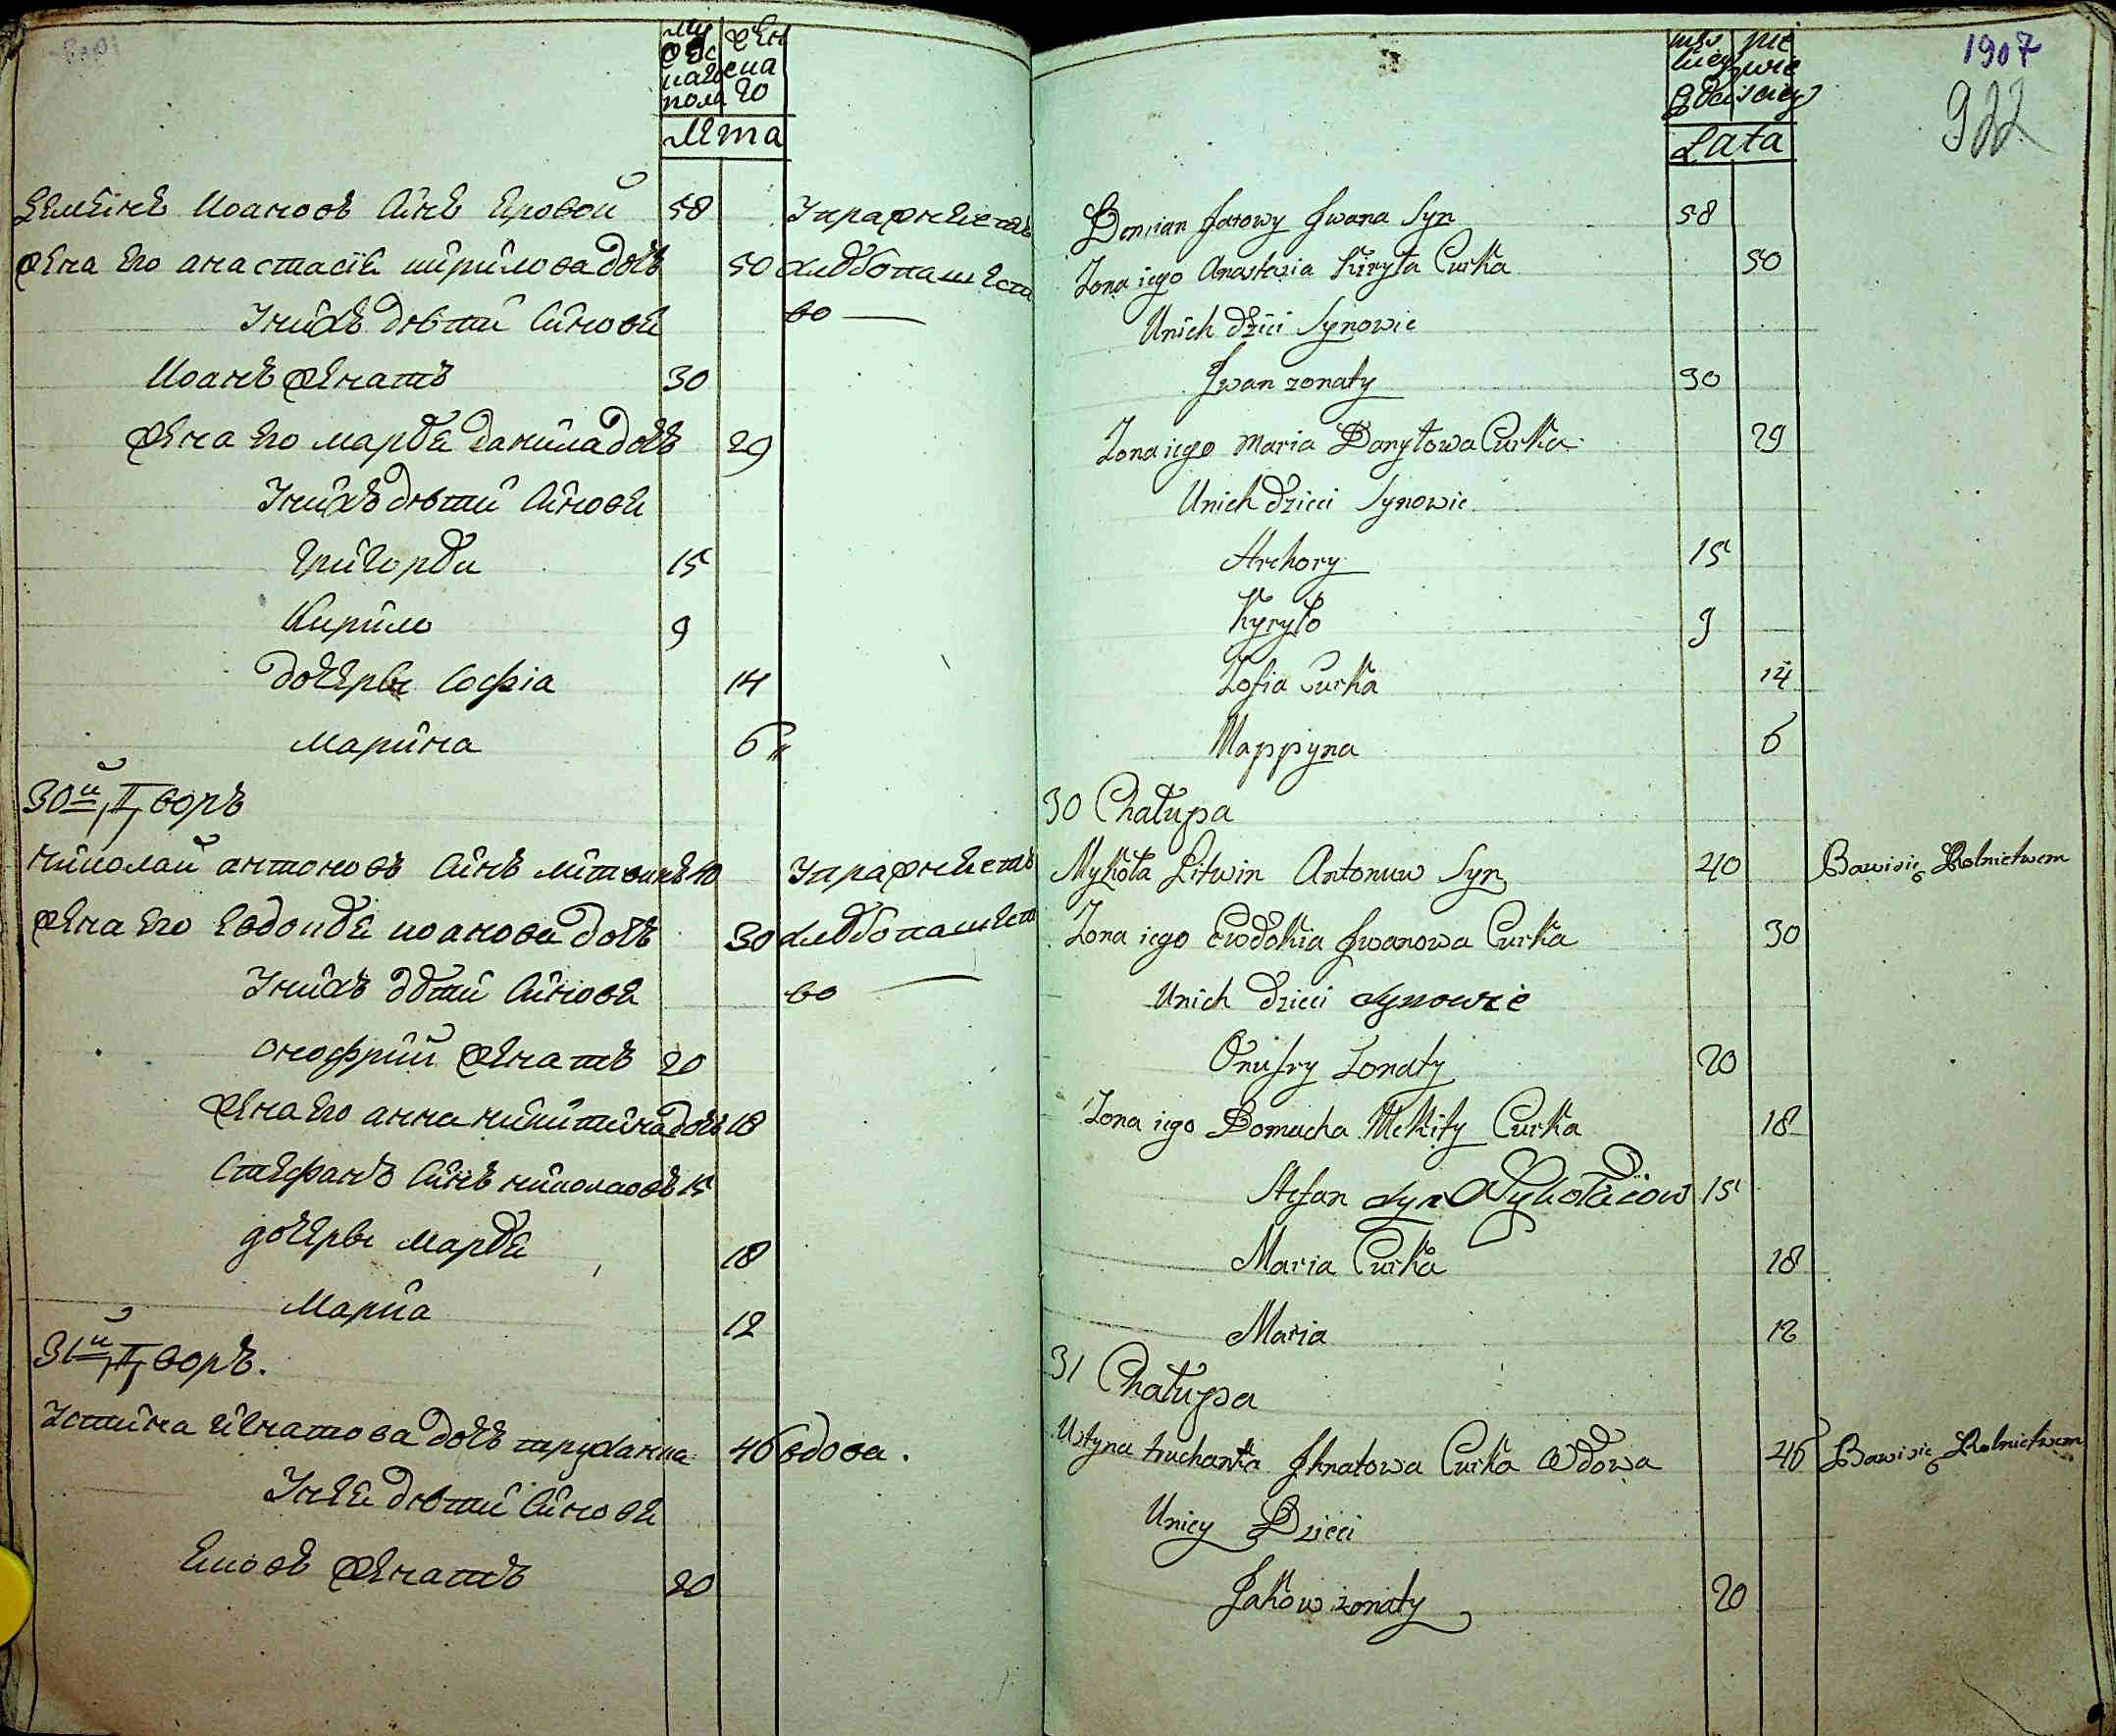 му жен
жес ска
каго го
пола
Лета
Демянъ Иоановъ Синъ Яровой 58 Упражняетъ
жена его анастасія кирилова дочъ 50 хлѣбопашест
Унихъ дѣти Синове во
Иоанъ женатъ 30
жена его марѣя данила дочъ 29
Унихъ дѣти Синове
Григорѣи 15
Кирило 9
дочеры Софія 14
Марина 6
30й Дворъ
Николай антоновъ Синъ Литвинъ 40 Упражняетъ
жена его Евдокѣя иоанова дочъ 30 хлѣбопашест
Унихъ дѣти Синове во
Онофрий женатъ 20
жена его анна никитина дочъ 18
Стефанъ Синъ николаовъ 15
дочеры марѣя 18
Мария 12
31й Дворъ.
Устина Игнатова дочъ труханка 46 вдова.
Унее дѣти Синове
Яковъ женатъ 20
1907
922
męs
kiey
płci
żeńskiey
Lata
Demian Jarowy Jwana Syn 58
Zona iego Anastazia Kiryła Curka 50
Unich dzici Synowie
Jwan zonaty 30
Zona iego Maria Danyłowa Curka 29
Unich Dzieci Synowie
Hrehory 15
Kyryło 9
Zofia Curka 14
Marryna 6
30 Chałupa
Mykoła Litwin Antonuw Syn 40 Bawisię Rolnictwem
Zona iego Ewdokia Jwanowa Curka 30
Unich Dzieci Synowie
Onufry Zonaty 20
Zona iego Domucha Mekity Curka 18
Stefan Syn Mykołaiow 15
Maria Curka 18
Maria 12
31 Chałupa
Ustyna truchanka Jhnatowa Curka Wdowa 46 Bawisię Rolnictwem
Uniey Dzieci
Jakow zonaty 20